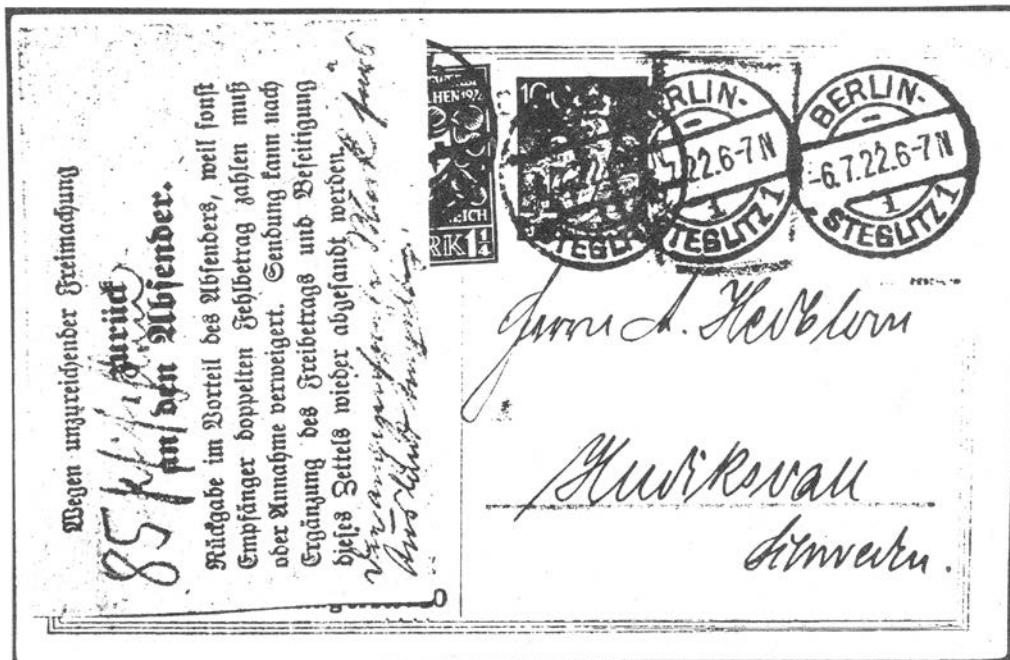 Wegen unzureichender Freimachung
zurück
an den Absender.
Rückgabe im Vorteil des Absenders, weil sonst
Empfänger doppelten Fehlbetrag zahlen muß
oder Annahme verweigert. Sendung kann nach
Ergänzung des Freibetrags und Beseitigung
dieses Zettels wieder abgesandt werden.
85
BERLIN-
-6.7.22.6-7N
STEGLITZ 1
BERLIN-
7.22.6-7N
STEGLITZ 1
STEGLITZ
100
1¼
Herrn A. Hedblom
Hudiksvall
Schweden.